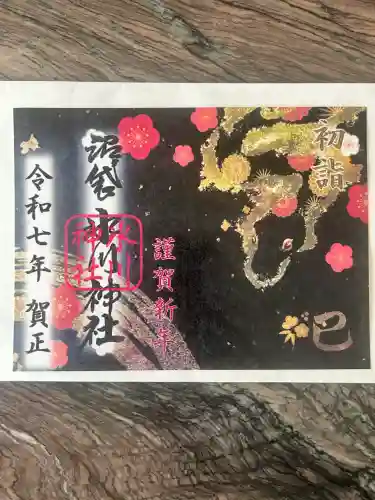 初詣
巳
謹賀新年
沼袋 氷川神社
氷川
神社
令和七年 賀正